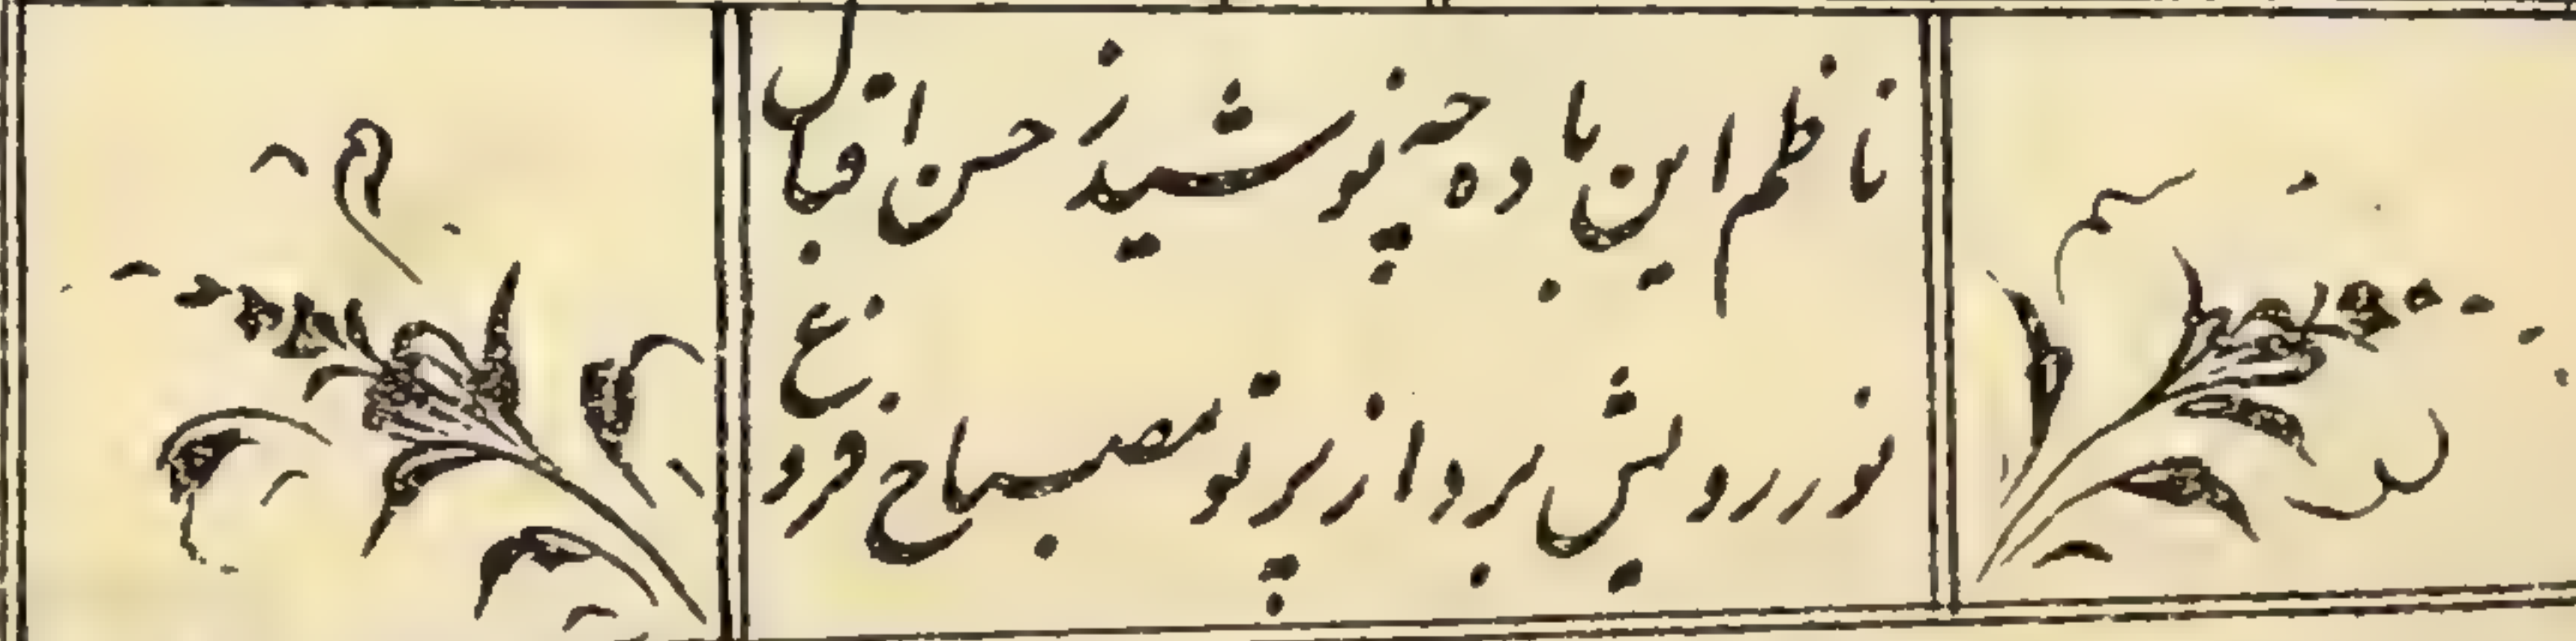 ناظم این باده چو نوشید ز حسن اقبال
نور رویش ببرد از پرتو مصباح فروغ